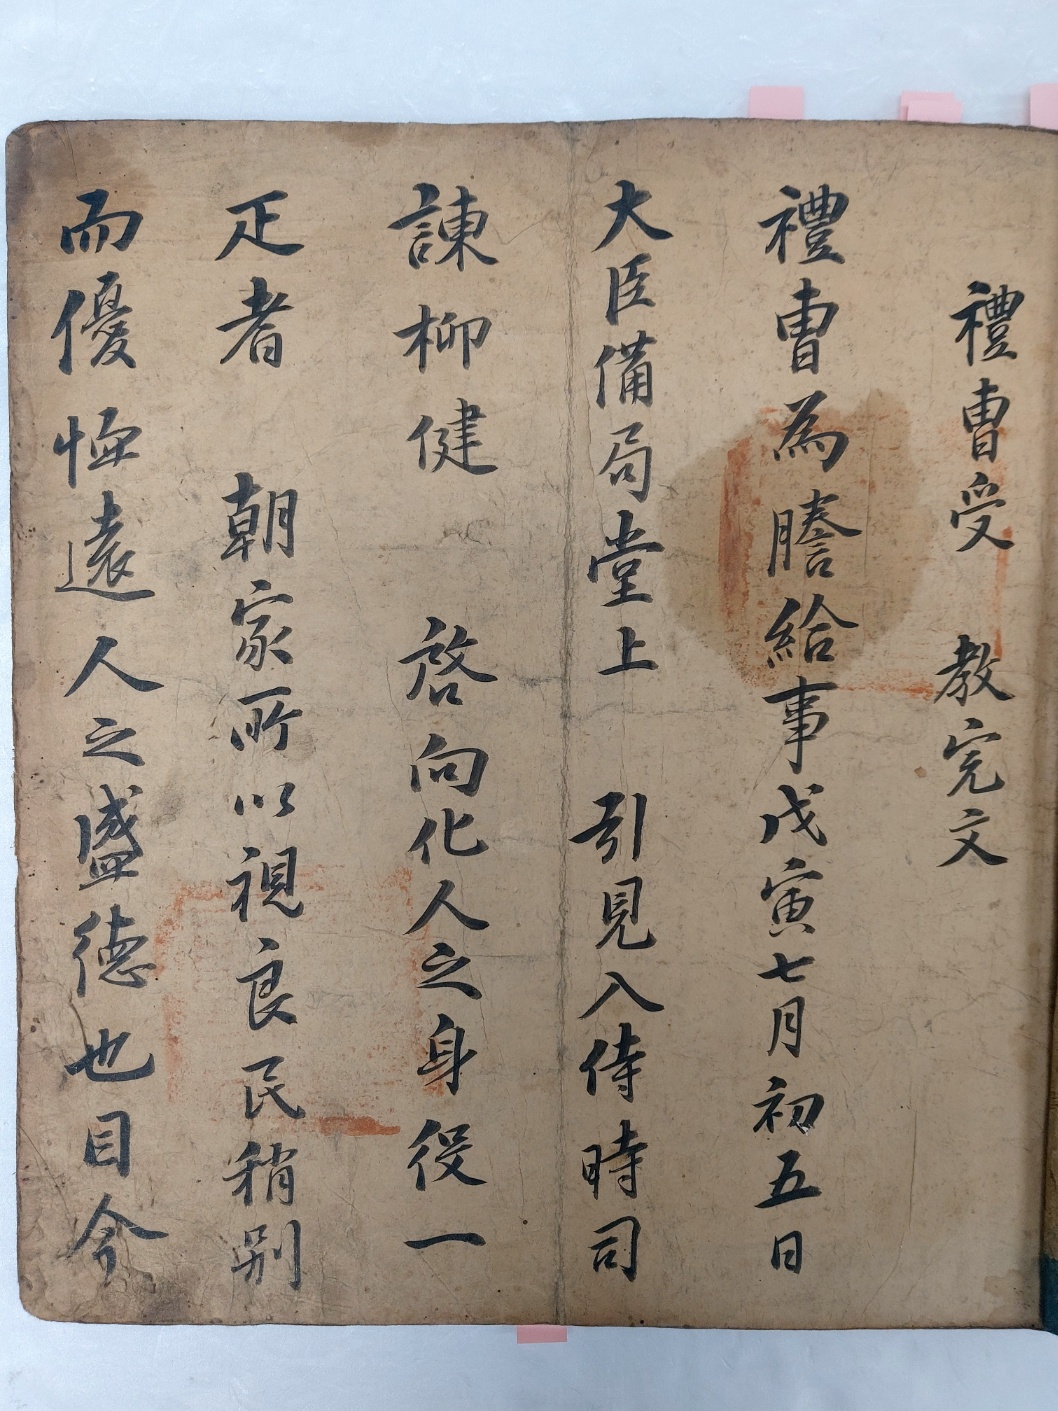 禮曺受 教完文
禮曺為謄給事戊寅七月初五日
大臣備局堂上 引見入侍時司
諫柳健 啓向化人之身役一
疋者 朝家所以視良民稍別
而優恤遠人之盛德也目今